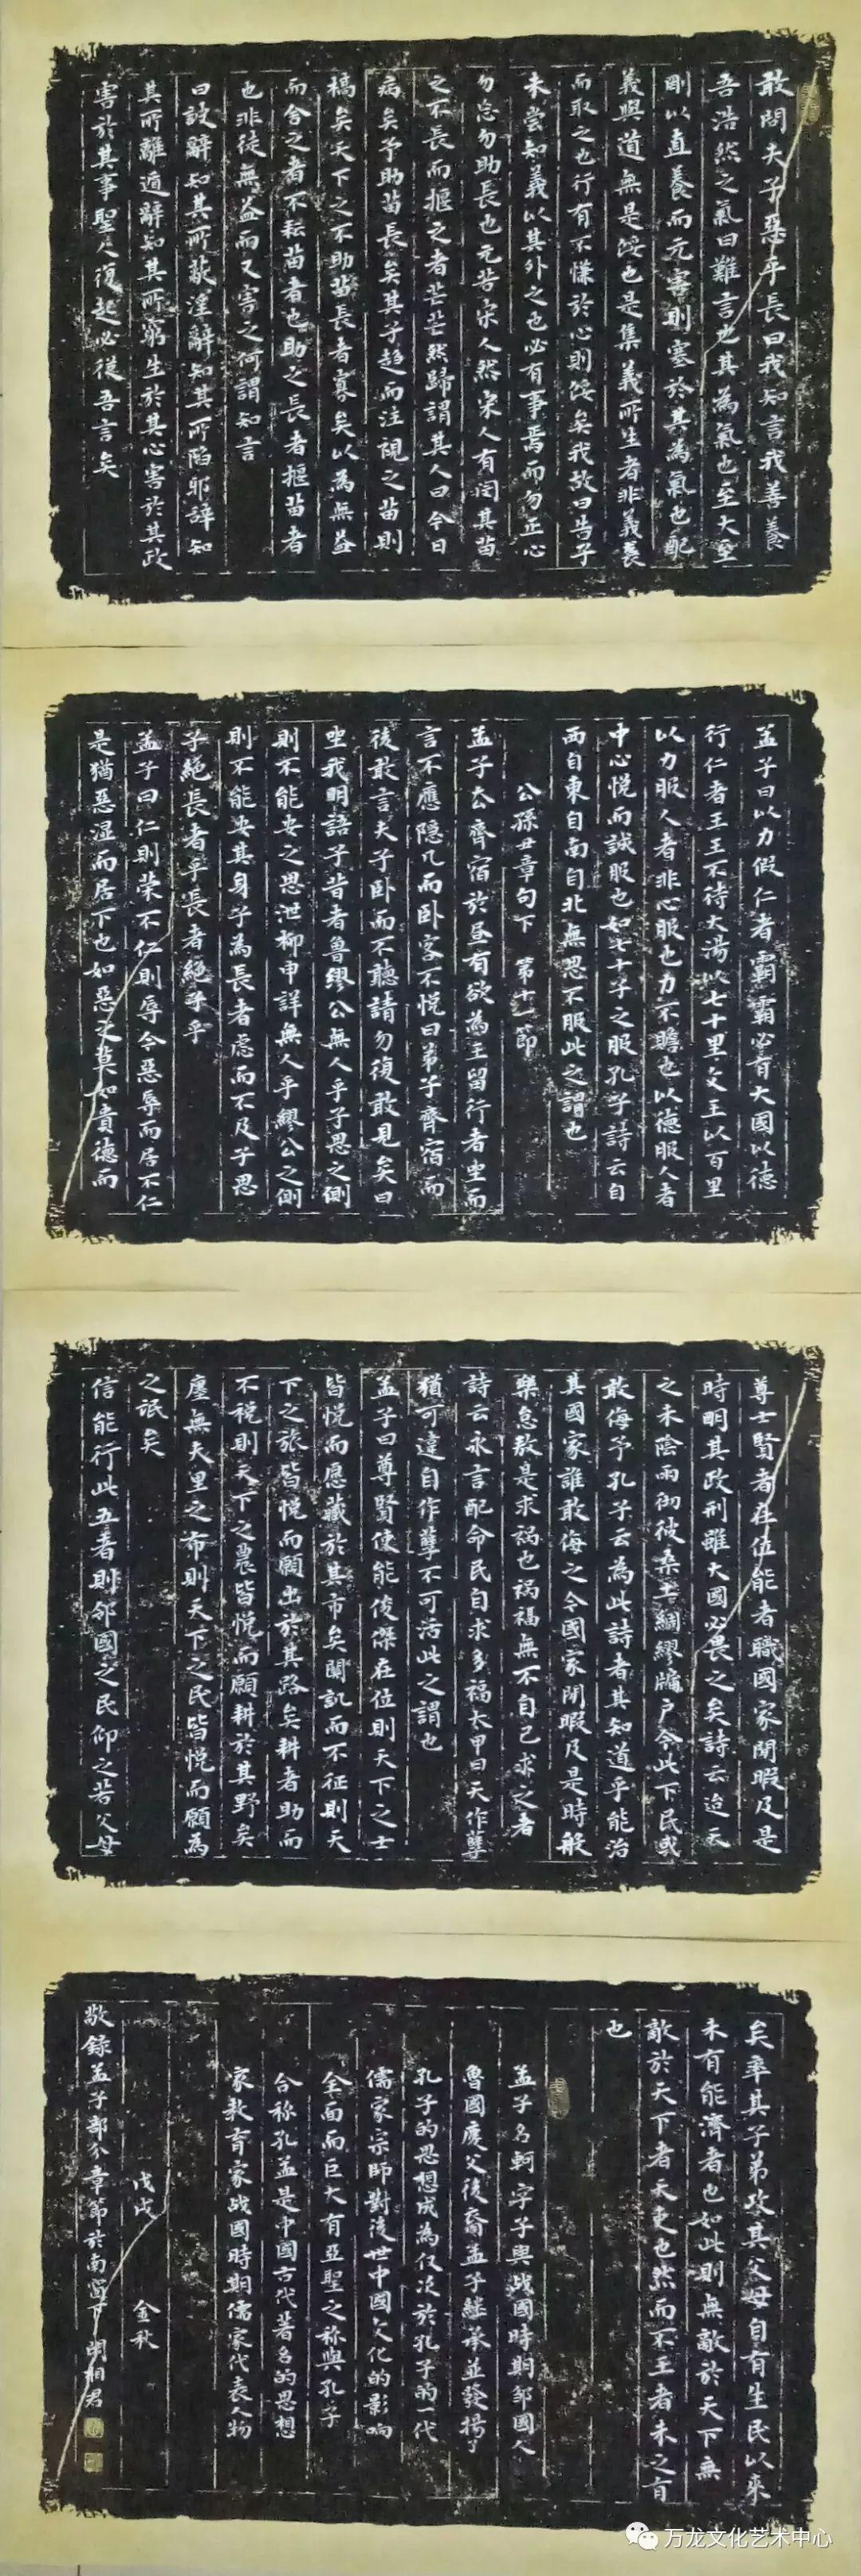 敢問夫子惡乎長曰我知言我善養
吾浩然之氣曰難言也其為氣也至大至
剛以直養而无害則塞於其為氣也配
義與道無是餒也是集義所生者非義襲
而取之也行有不慊於心則餒矣我故曰告子
未嘗知義以其外之也必有事焉而勿正心
勿忘勿助長也无若宋人然宋人有閔其苗
之不長而揠之者芒芒然歸謂其人曰今日
病矣予助苗長矣其子趨而注視之苗則
槁矣天下之不助苗長者寡矣以為無益
而舍之者不耘苗者也助之長者揠苗者
也非徒無益而又害之何謂知言
曰詖辭知其所蔽淫辭知其所陷邪辭知
其所離遁辭知其所窮生於其心害於其政
害於其事聖人復起必從吾言矣
孟子曰以力假仁者霸霸必有大國以德
行仁者王王不待大湯以七十里文王以百里
以力服人者非心服也力不贍也以德服人者
中心悅而誠服也如七十子之服孔子詩云自
西自東自南自北無思不服此之謂也
公孫丑章句下 第十一節
孟子去齊宿於昼有欲為王留行者坐而
言不應隱几而卧客不悅曰弟子齊宿而
後敢言夫子卧而不聽請勿復敢見矣曰
坐我明語子昔者魯繆公無人乎子思之側
則不能安之思泄柳申詳無人乎繆公之側
則不能安其身子為長者慮而不及子思
子絕長者乎長者絕子乎
孟子曰仁則荣不仁則辱今惡辱而居不仁
是猶惡湿而居下也如惡之莫如貴德而
尊士賢者在位能者職國家閒暇及是
時明其政刑雖大國必畏之矣詩云迨天
之未陰雨彻彼桑土綢繆牖户今此下民或
敢侮予孔子云為此詩者其知道乎能治
其國家誰敢侮之今國家閒暇及是時般
樂怠敖是求祸也祸福無不自己求之者
詩云永言配命民自求多福太甲曰天作孽
猶可違自作孽不可活此之謂也
孟子曰尊賢使能俊傑在位則天下之士
皆悅而愿藏於其市矣關訊而不征則天
下之旅皆悅而願出於其路矣耕者助而
不税則天下之農皆悅而願耕於其野矣
廛無夫里之布則天下之民皆悅而願為
之氓矣
信能行此五者則邻國之民仰之若父母
矣率其子弟攻其父母自有生民以來
未有能濟者也如此則無敵於天下無
敵於天下者天吏也然而不王者未之有
也
孟子名軻字子與战國時期邹國人
魯國慶父後裔孟子继承並發揚了
孔子的思想成為仅次於孔子的一代
儒家宗師對後世中國文化的影响
全面而巨大有亞聖之称與孔子
合称孔孟是中國古代著名的思想
家教育家战國時期儒家代表人物
戊戌 金秋
敬録孟子部分章節於南寧 胡相君
万龙文化艺术中心